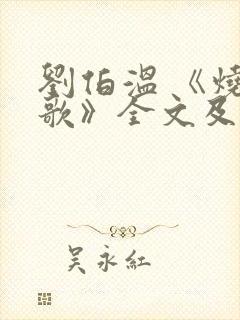 劉伯溫《燒
歌》全文及
吴永紅